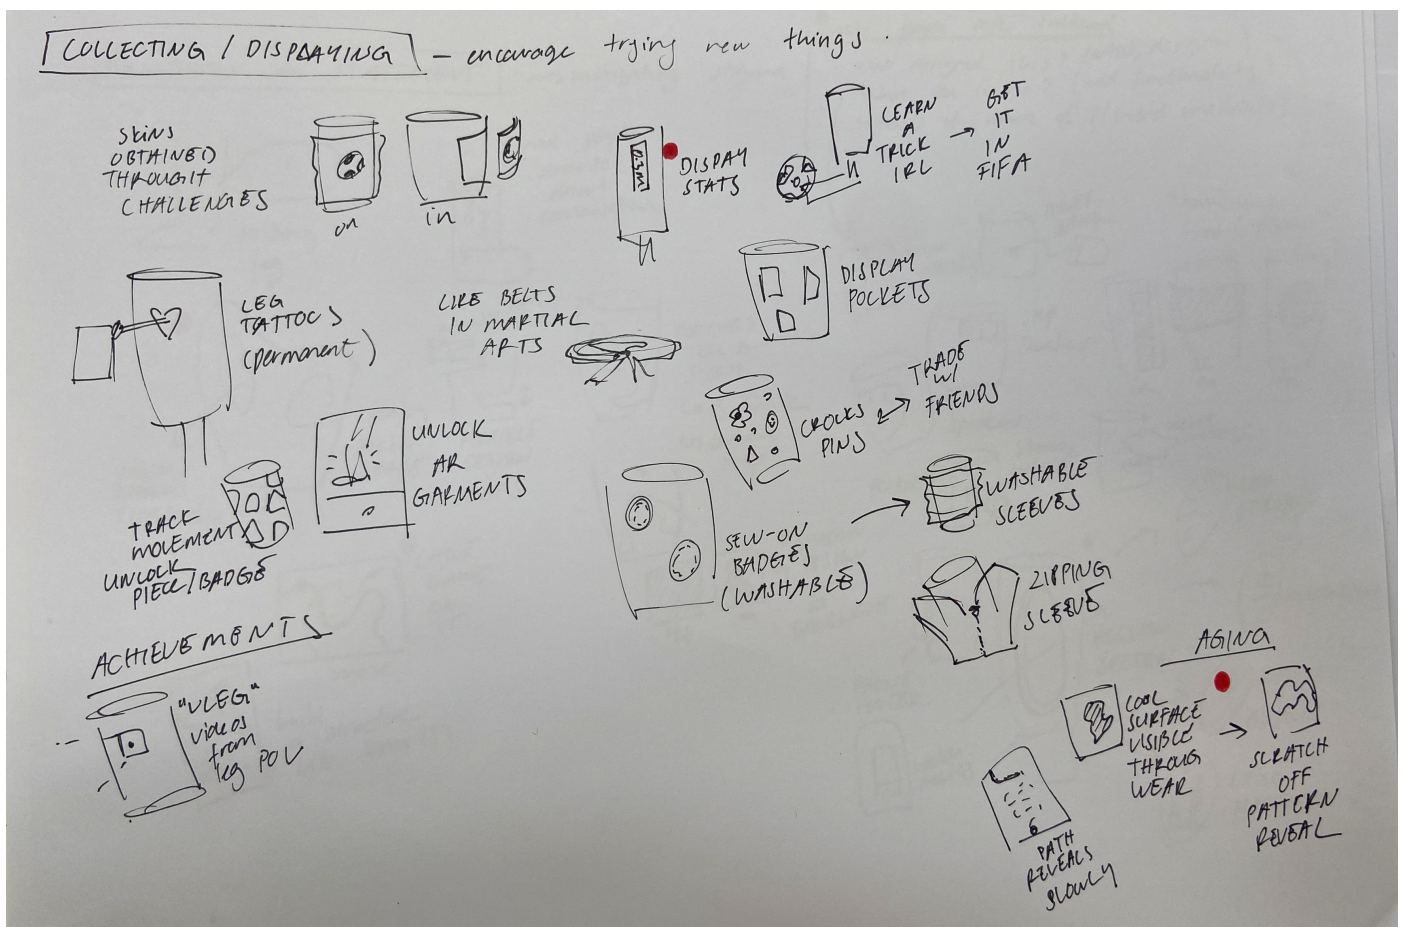 COLLECTING / DISPLAYING - encourage trying new things.
SKINS
OBTAINED
THROUGHT
CHALLENGES
on
in
0.3m
DISPAY
STATS
LEARN
A
TRICK
IRL
→ GET
IT
IN
FIFA
LEG
TATTOOS
(permanent)
LIKE BELTS
IN MARTIAL
ARTS
DISPLAY
POCKETS
UNLOCK
AR
GARMENTS
CROCKS
PINS
TRADE
W/
FRIENDS
TRACK
MOVEMENT
UNLOCK
PIECE/BADGE
SEW-ON
BADGES
(WASHABLE)
WASHABLE
SLEEVES
ZIPPING
SLEEVE
ACHIEVEMENTS
"VLEG"
videos
from
leg POV
AGING
COOL
SURFACE
VISIBLE
THROUG
WEAR
SCRATCH
OFF
PATTERN
REVEAL
PATH
REVEALS
SLOWLY